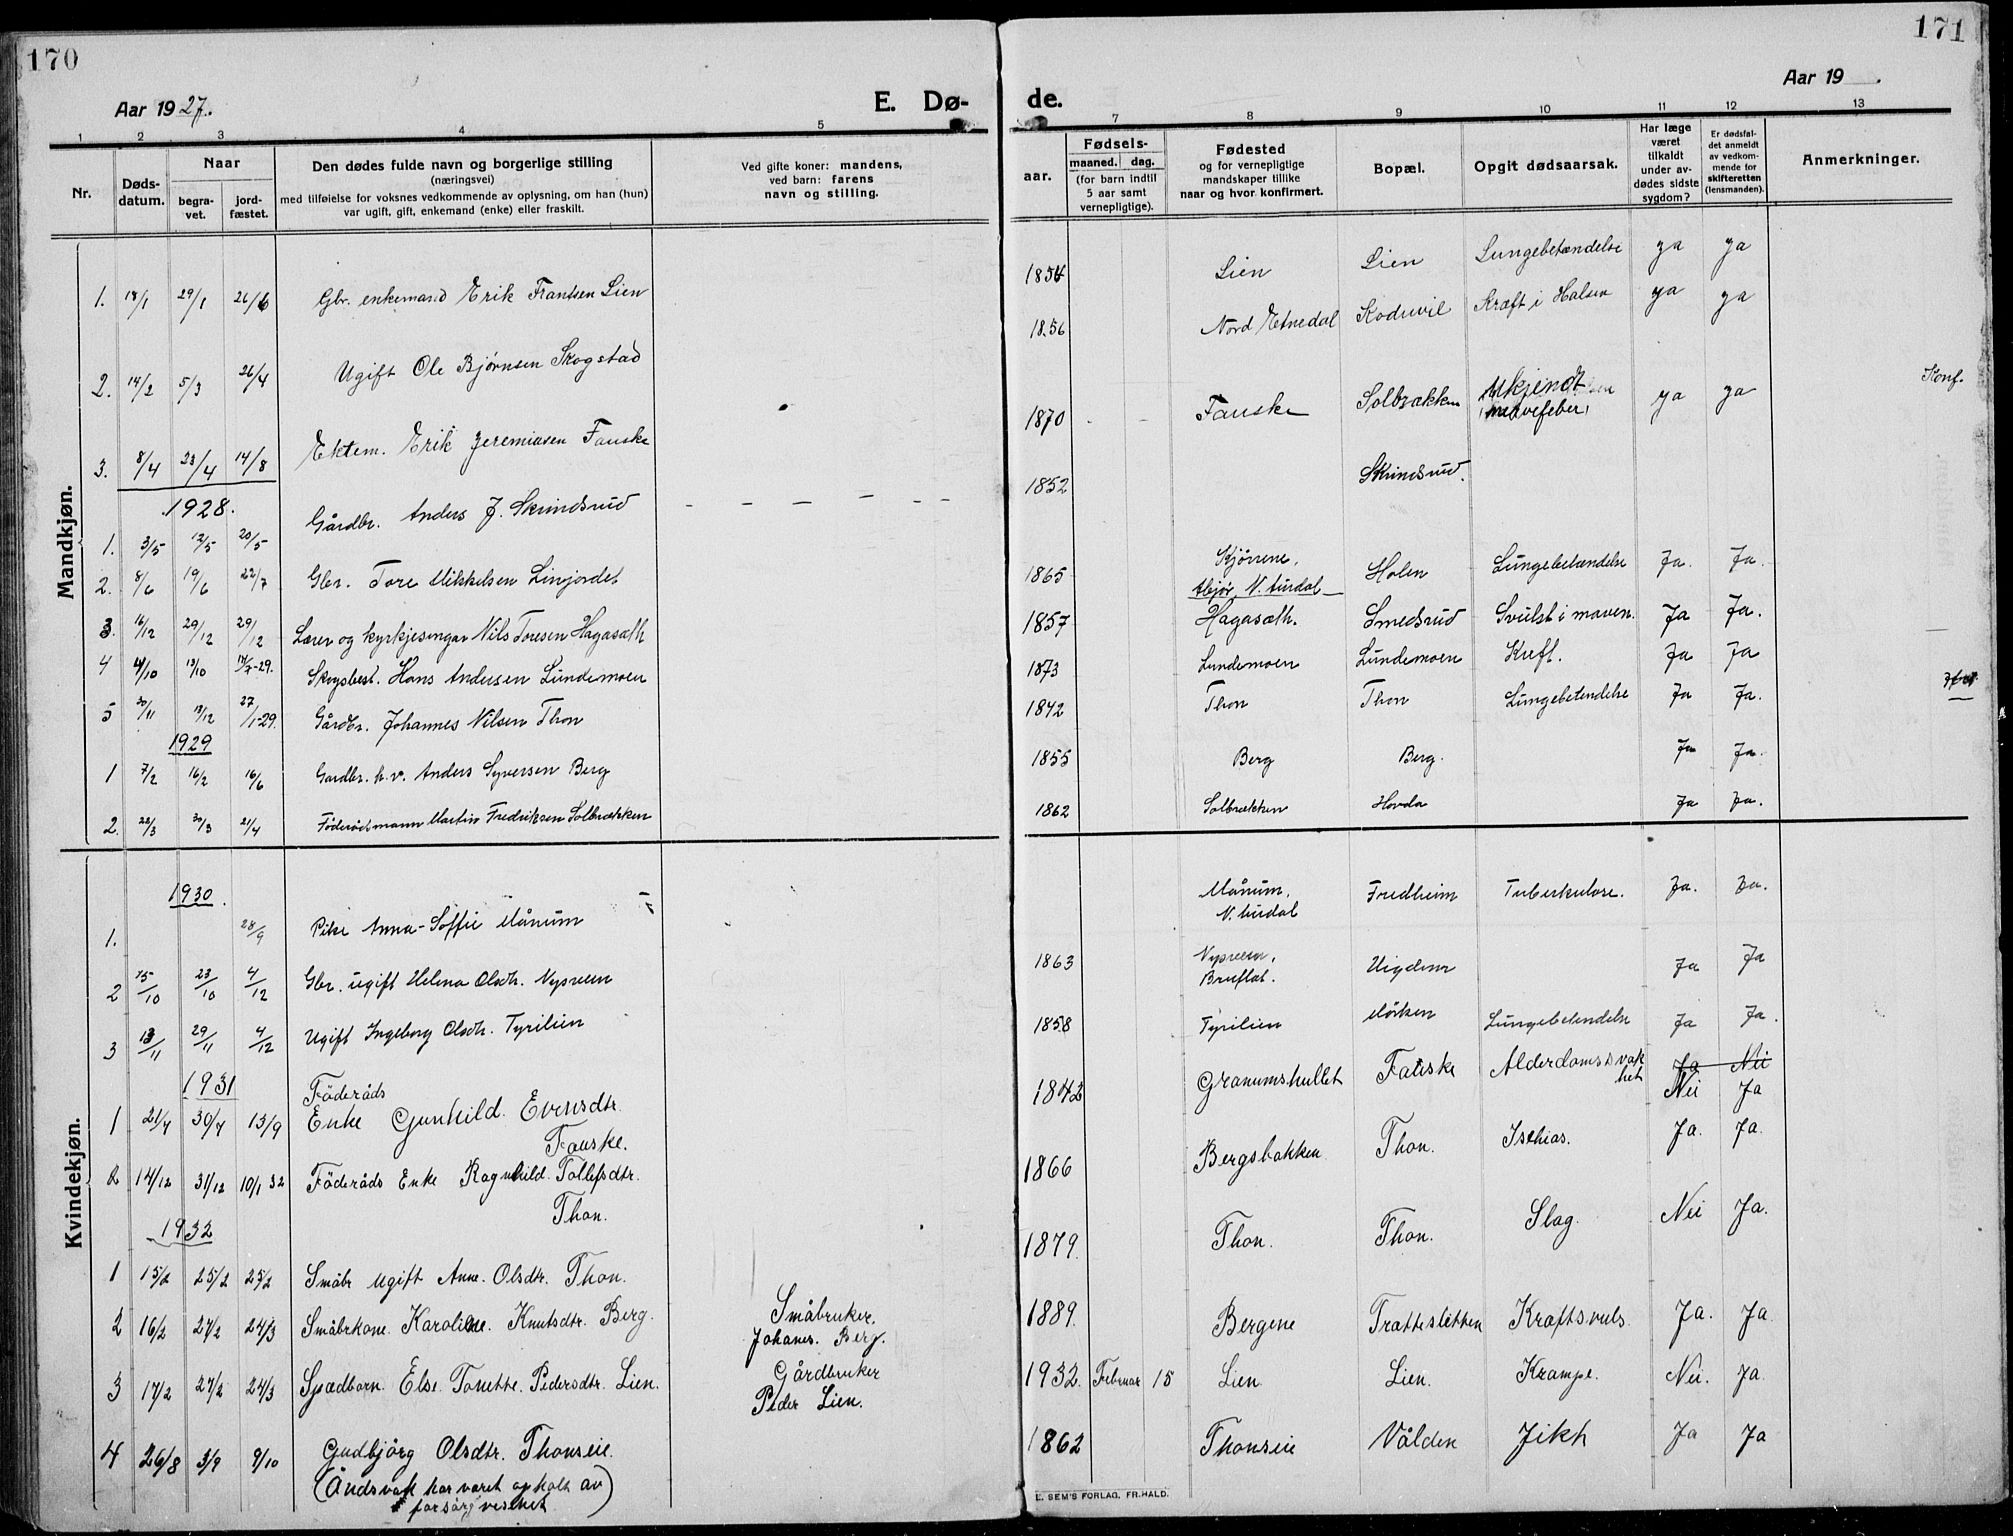 170
171
Aar 1927.
E. Dø-
de.
Aar 19 .
1 2 3 4 5
7 8 9 10 11 12 13
Nr.
Døds-
datum.
Naar
begra-
vet.
jord-
fæstet.
Den dødes fulde navn og borgerlige stilling
(næringsvei)
med tilføielse for voksnes vedkommende av oplysning, om han (hun)
var ugift, gift, enkemand (enke) eller fraskilt.
Ved gifte koner: mandens,
ved barn: farens
navn og stilling.
aar.
Fødsels-
maaned. dag.
(for barn indtil
5 aar samt
vernepligtige).
Fødested
og for vernepligtige
mandskaper tillike
naar og hvor konfirmert.
Bopæl.
Opgit dødsaarsak.
Har læge
været
tilkaldt
under av-
dødes sidste
sygdom?
Er dødsfal-
det anmeldt
av vedkom-
mende for
skifteretten
(lensmanden).
Anmerkninger.
Mandkjøn.
1. 18/1 29/1 26/6 Gbr. enkemand Erik Frantsen Lien 1854 Lien Lien Lungebetændelse ja ja
2. 14/2 5/3 26/4 Ugift Ole Bjørnsen Skogstad 1856 Nord Etnedal Kræft i Halsen ja ja
3. 8/4 23/4 14/8 Ektem. Erik Jeremiasen Fauske 1870 Fauske Solbrækken Ukjendt ja ja Konf.
1928.
1. 3/5 12/5 20/5 Gårdbr. Anders J. Skrindsrud 1852 Skrindsrud.
2. 8/6 19/6 22/7 Gbr. Tore Mikkelsen Linjordet 1865 Holen Lungebetændelse Ja. Ja.
N. Aurdal
3. 16/12 29/12 29/12 Lærer og kyrkjesongar Nils Toresen Hagasæth 1857 Hagasæth. Smedsrud Svulst i maven. Ja Ja.
4 4/10 13/10 14/7-29. Skogsbest. Hans Andersen Lundemoen 1873 Lundemoen Lundemoen Kreft. Ja Ja
5 30/11 13/12 27/1-29. Gårdbr. Johannes Nilsen Thon 1842 Thon Thon Lungebetendelse Ja Ja.
1929
1 7/2 16/2 16/6 Gardbr. h.v. Anders Syversen Berg 1855 Berg Berg. Ja Ja.
2. 22/3 30/3 21/4 Föderådsmann Martin Fredriksen Solbrækken 1862 Solbrækken Hovda Ja Ja.
Kvindekjøn.
1930.
1. 28/9 Pike Anna-Soffie Månum Månum, Fredheim Tuberkulose. Ja. Ja.
N. Aurdal
2 15/10 23/10 4/12 Gbr. ugift Helena Olsdtr. Nypveen 1863 Nypveen, Ja Ja
Bruflat.
3 13/11 29/11 4/12 Ugift Ingeborg Olsdtr. Tyrilien 1858 Tyrilien Mörken Lungebetendelse Ja Ja.
1931
Föderåds
1 21/4 30/4 13/9 Enke Gunhild. Evensdtr. 1842 Granumshullet Fauske Alderdomssvak Ja Nei
Fauske. het Nei Ja
2 14/12 31/12 10/1 32 Föderåds Enke Ragnhild. Tollefsdtr. 1866 Bergsbakken Thon. Ischias. Ja. Ja.
Thon.
1932
1 15/2 25/2 25/2 Småbr ugift Anne. Olsdtr. Thon. 1879. Thon. Thon. Slag. Nei Ja.
2 16/2 27/2 24/3 Småbrkone. Karoline. Knutsdtr. Berg. Småbruker. 1889. Bergene Trattesletten Kræftsvuls. Ja. Ja
Johanes. Berg.
3 17/2 27/2 24/3 Spædbarn. Else. Tonette. Pedersdtr. Lien. Gårdbruker 1932. Februar 15 Lien Lien. Krampe. Nei. Ja
Peder Lien.
4 26/8 3/9 9/10 Gudbjörg Olsdtr. Thonseie. 1862 Thonseie Vålden Jikh Ja Ja
(Åndsvak har været opholt av
forsörgvesenet)
E. SEM'S FORLAG, FR.HALD.